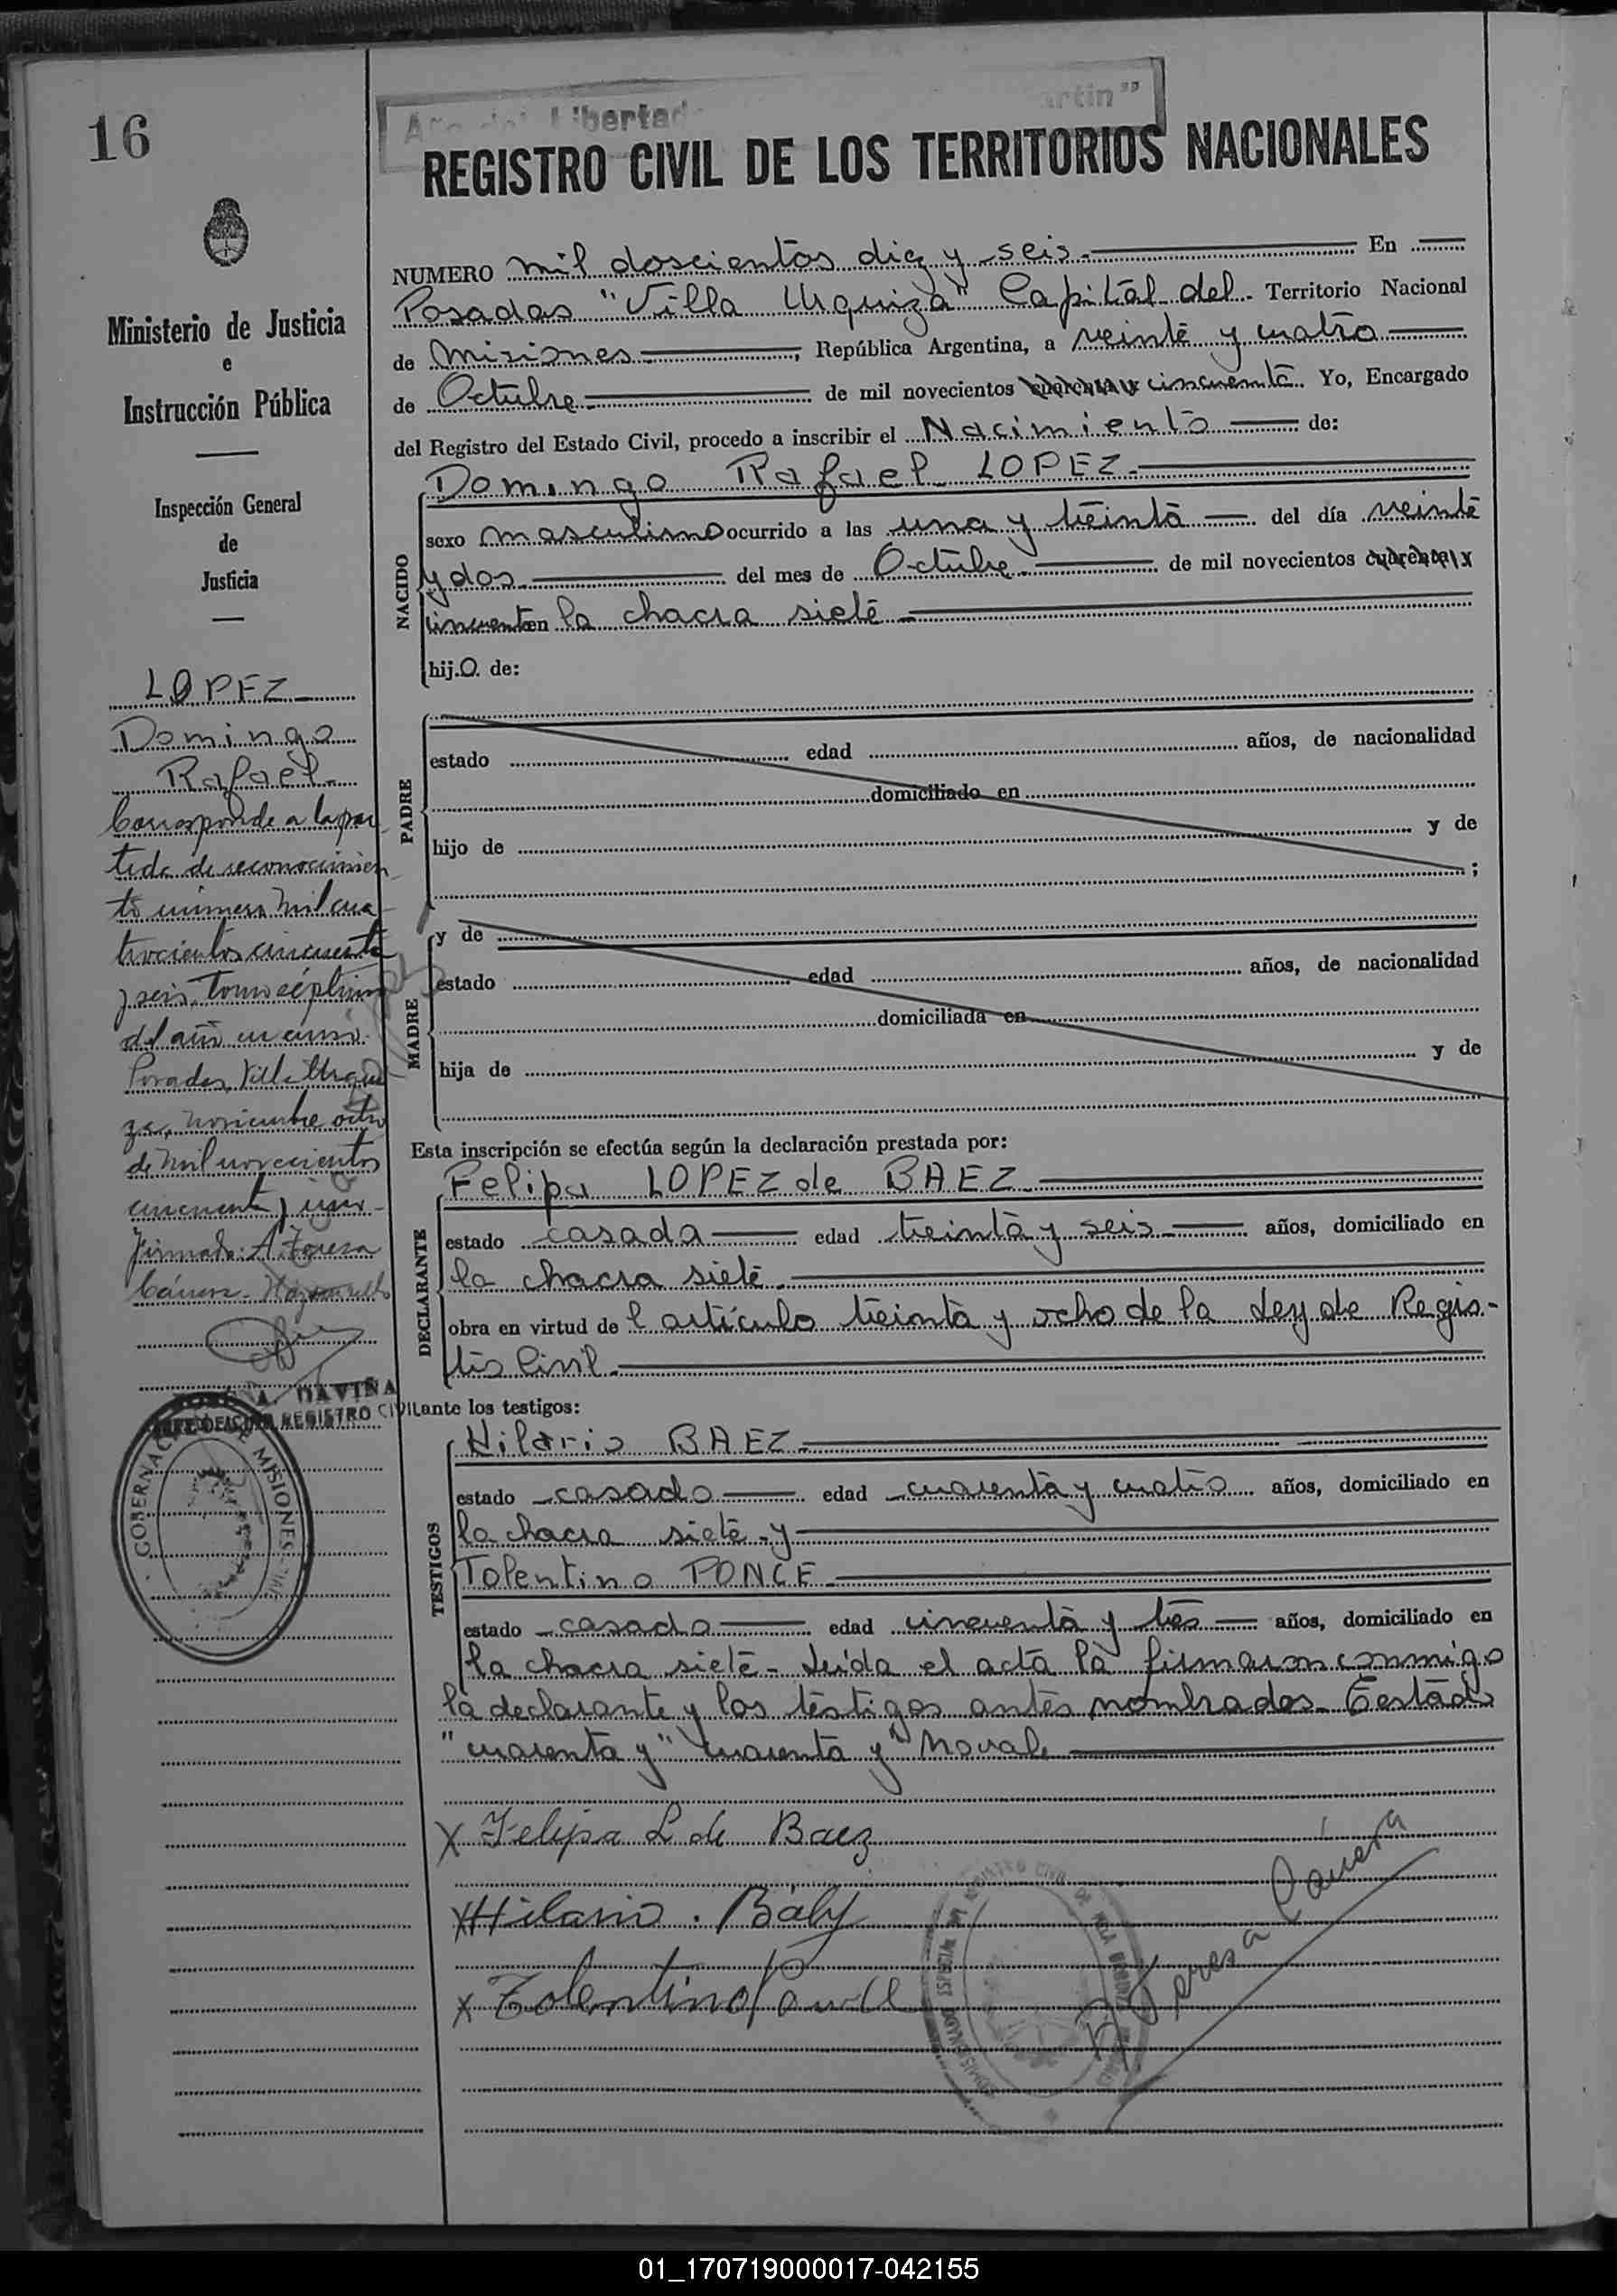 16
Año del Libertad
artin"
REGISTRO CIVIL DE LOS TERRITORIOS NACIONALES
Ministerio de Justicia
e
Instrucción Pública
Inspección General
de
Justicia
LOPEZ
Domingo
Rafael
Corresponde a la par
tida de reconocimien
to número Mil cua
trocientos cincuenta
y seis, Tomo séptimo
del año en curso.
Posadas, Villa Urqui
za, noviembre ocho
de mil novecientos
cincuenta y uno-
Firmado: A. Teresa
Cánera
A. DAVIÑA
JEFE OFICINA REGISTRO CIVIL
GOBERNAC DE MISIONES
NUMERO mil doscientos diez y seis. En
Posadas "Villa Urquiza" Capital del Territorio Nacional
de Misiones, República Argentina, a veinte y cuatro
de Octubre de mil novecientos cuarenta y cincuenta. Yo, Encargado
del Registro del Estado Civil, procedo a inscribir el Nacimiento de:
NACIDO
Domingo Rafael LOPEZ.
sexo masculino ocurrido a las una y treinta del día veinte
y dos del mes de Octubre. de mil novecientos cuarenta y
cincuenta en la chacra siete
hijo. de:
PADRE
estado edad años, de nacionalidad
domiciliado en
hijo de y de
;
MADRE
y de
estado edad años, de nacionalidad
domiciliada en
hija de y de
Esta inscripción se efectúa según la declaración prestada por:
DECLARANTE
Felipa LOPEZ de BAEZ
estado casada edad treinta y seis años, domiciliado en
la chacra siete.
obra en virtud del artículo treinta y ocho de la Ley de Regis-
tro Civil.
ante los testigos:
TESTIGOS
Hilario BAEZ
estado casado edad cuarenta y cuatro años, domiciliado en
la chacra siete y
Tolentino PONCE
estado casado edad cincuenta y tres años, domiciliado en
la chacra siete- Leída el acta la firmaron conmigo
la declarante y los testigos antes nombrados. Testado
"cuarenta y" cuarenta y" No vale
X Felipa L de Baez
X Hilario. Báez
X Tolentino Ponce
A. Teresa Cánera
01_170719000017-042155